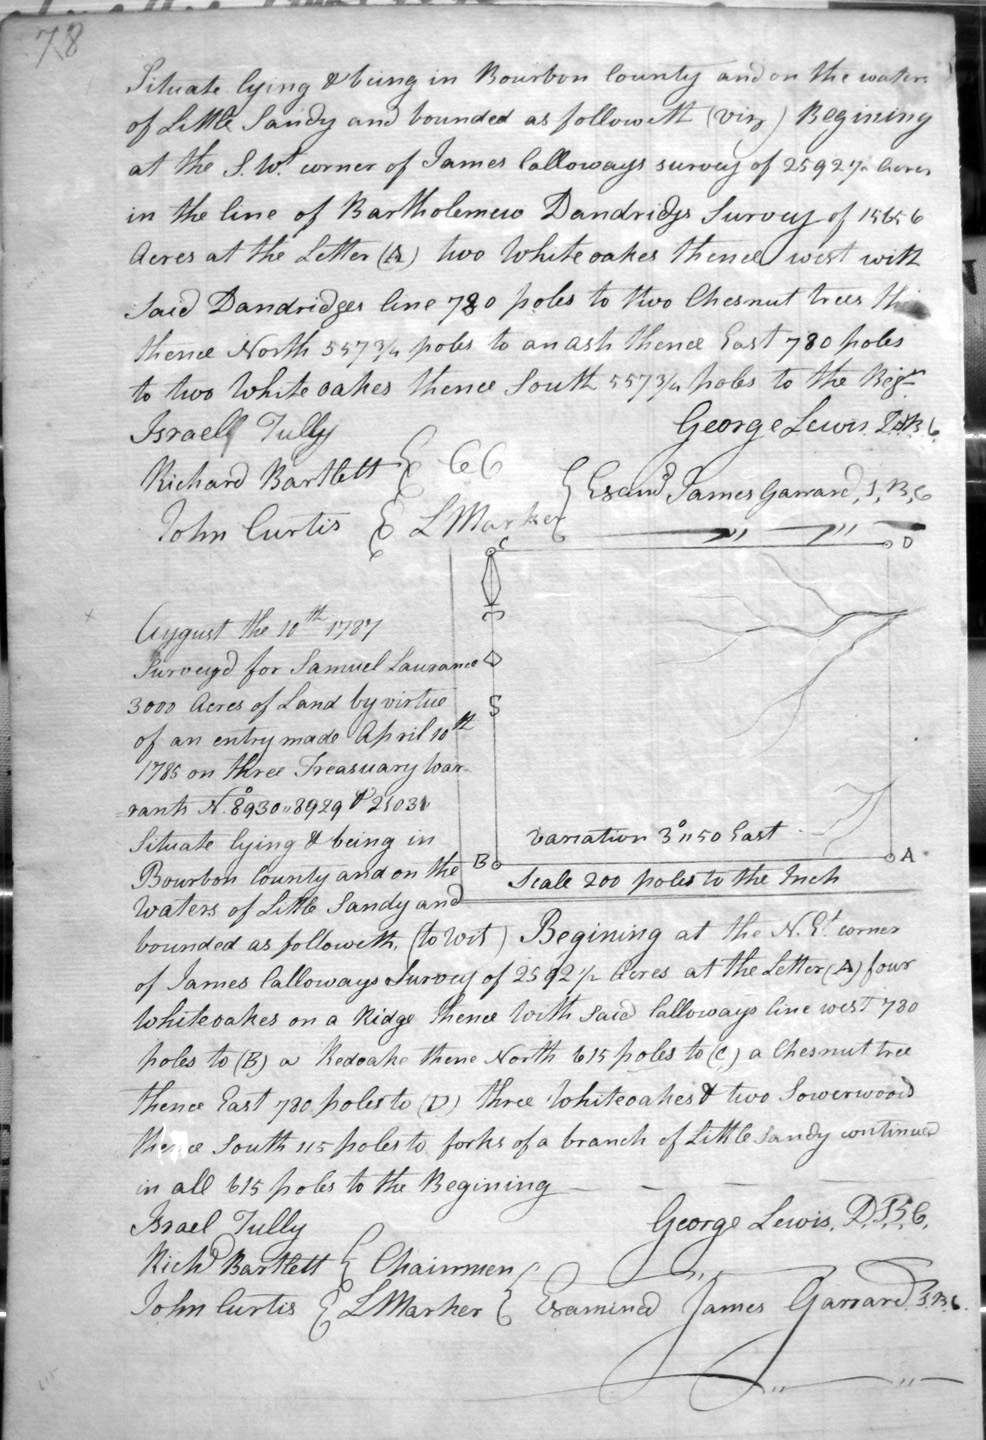 78
Situate lying & being in Bourbon County and on the waters
of Little Sandy and bounded as followeth (viz) Begining
at the S. Wt. corner of James Calloways survey of 2592½ Acres
in the line of Bartholemew Dandridgs Survey of 15656
Acres at the Letter (A) two Whiteoakes thence west with
Said Dandridges line 780 poles to two Chesnut trees
thence North 557¾ poles to an ash thence East 780 poles
to two White oakes thence South 557¾ poles to the Begg
Israel Tully
George Lewis D.S.B.C.
Richard Bartlett } CC
{ Examd James Garrard, S, B, C
John Curtis } L Marker
C D
August the 10th 1787
Survey'd for Samuel Laurance
3000 Acres of Land by virtue
S
of an entry made April 10th
1785 on three Treasuary War-
=rants No. 8930 " 8929 & 21031
Situate lying & being in
Variation 3° " 50 East
Bourbon County and on the
B A
Scale 200 poles to the Inch
Waters of Little Sandy and
bounded as followeth, (to Wit) Begining at the N. Et corner
of James Calloways Survey of 2592½ Acres at the Letter (A) four
Whiteoakes on a Ridge thence With Said Calloways line west 780
poles to (B) a Redoake thene North 615 poles to (C) a Chesnut tree
thence East 780 poles to (D) three Whiteoakes & two Sowerwood
thence South 115 poles to forks of a branch of Little Sandy continued
in all 615 poles to the Begining
Israel Tully
George Lewis. D.S.B.C.
Richd Bartlett { Chainmen
John Curtis } L Marker { Examined James Garrard. S.B.C.